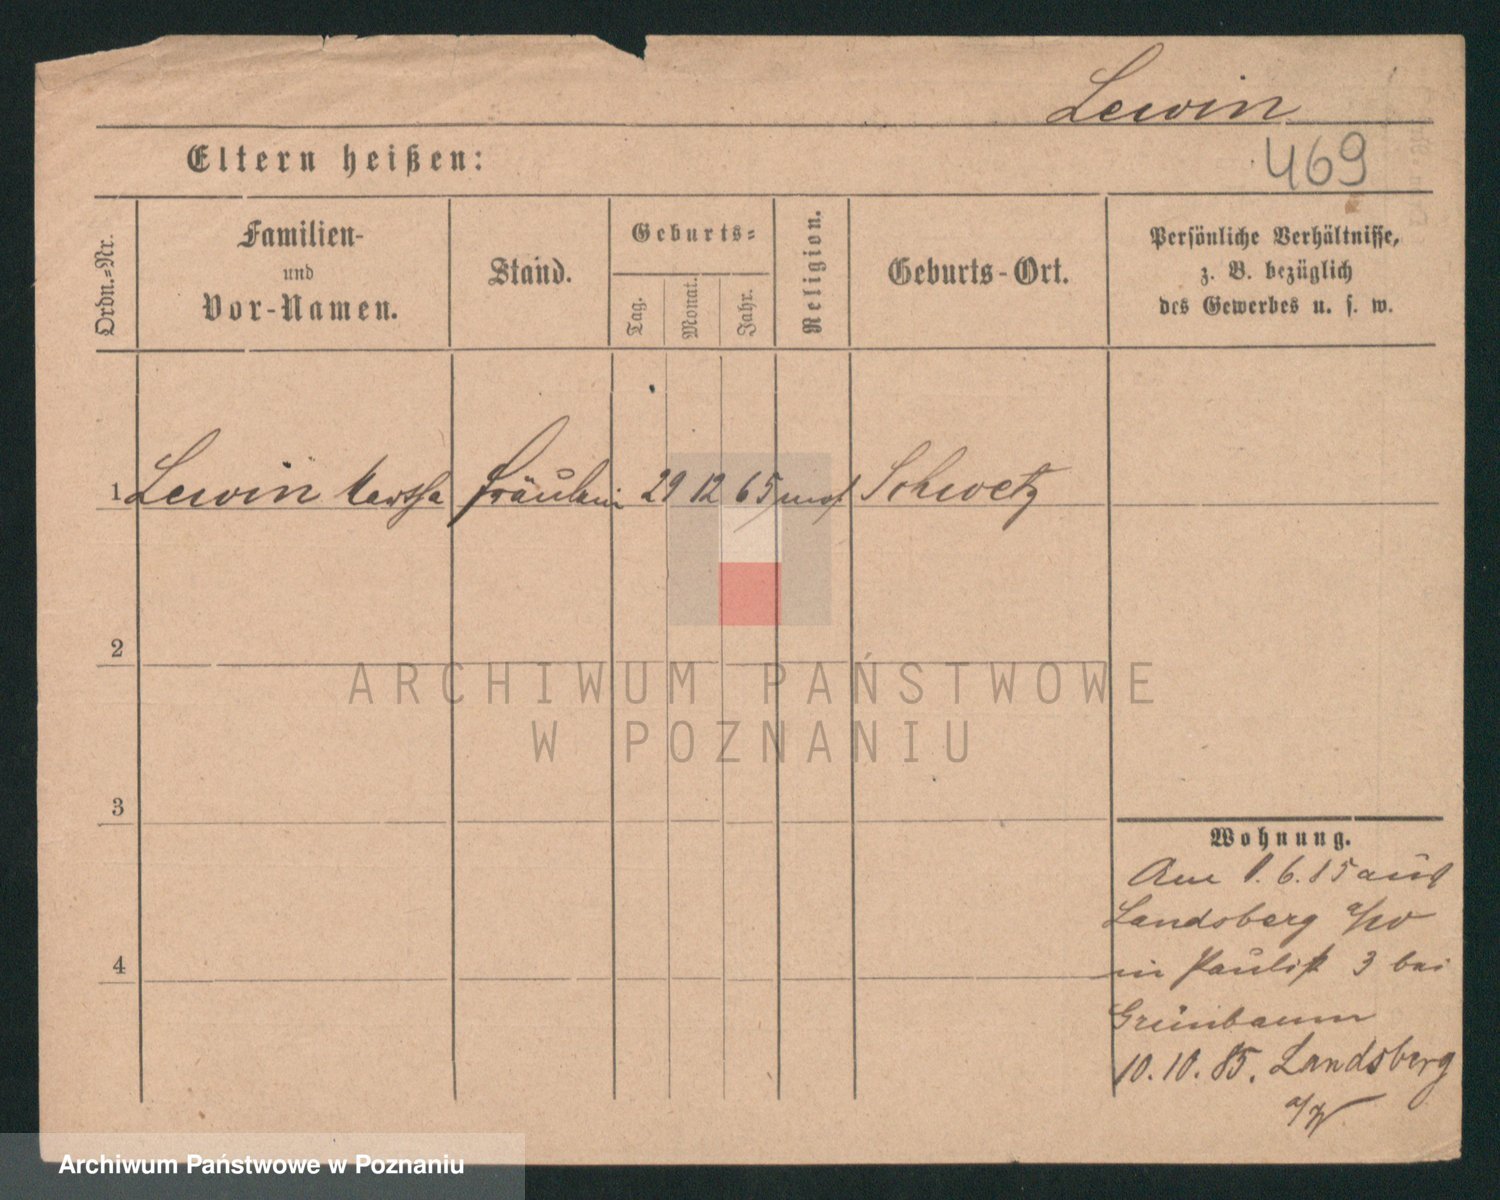 Lewin
469
Eltern heißen:
Ordn.=Nr.
Familien-
und
Vor-Namen.
Stand.
Geburts=
Tag.
Monat.
Jahr.
Religion.
Geburts-Ort.
Persönliche Verhältnisse,
z. B. bezüglich
des Gewerbes u. s. w.
1 Lewin Fräulein 29 12 65 mos Schwetz
2
3
4
Wohnung.
Am 1. 6. 85 aus
Landsberg a/W
in Paulik 3 bei
Grünbaum
10. 10. 85. Landsberg
a/W
ARCHIWUM PAŃSTWOWE
W POZNANIU
Archiwum Państwowe w Poznaniu